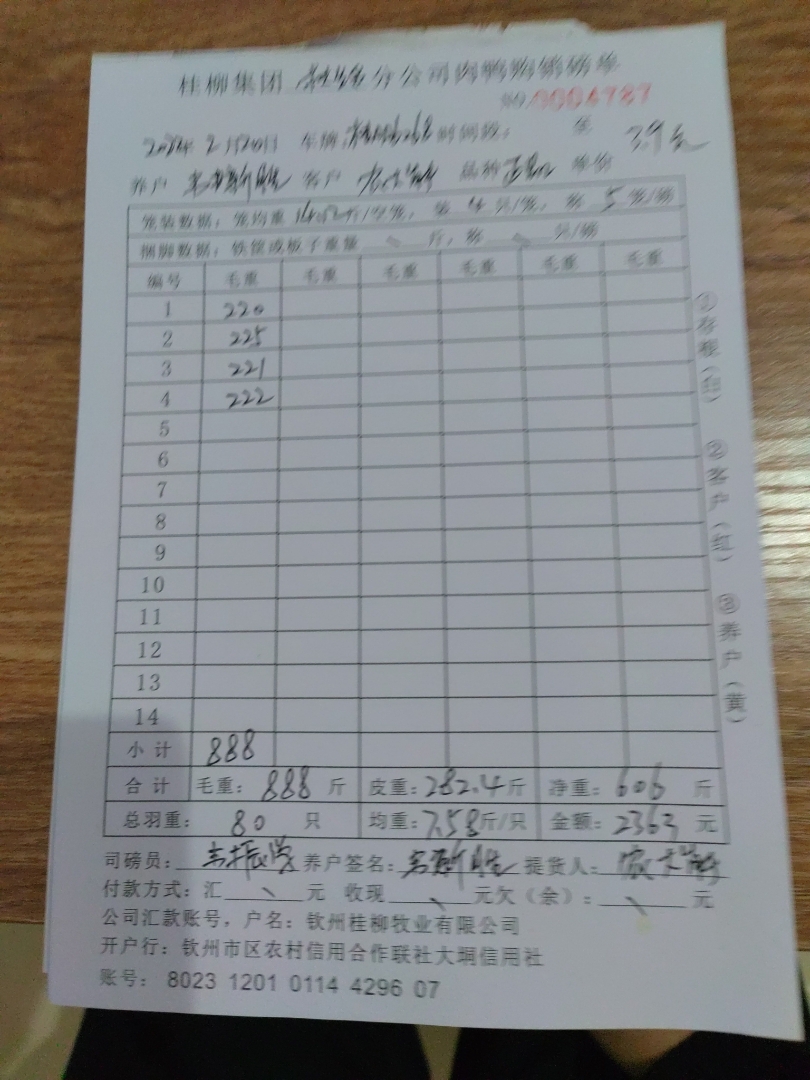 桂柳集团 分公司肉鸭购销磅单
NO.0004787
2022年2月20日 车牌: 时间段: 至 3.9元
养户 客户 品种 正品 单价
笼装数据：笼均重 斤/空笼，装 4 只/笼，称 5 笼/磅
捆脚数据：铁筐或板子重量 斤，称 只/磅
编号 毛重 毛重 毛重 毛重 毛重 毛重
1 220
2 225
3 221
4 222
5
6
7
8
9
10
11
12
13
14
小计 888
合计 毛重：888 斤 皮重：282.4 斤 净重：606 斤
总羽重：80 只 均重：7.58 斤/只 金额：2363 元
司磅员：韦振学 养户签名： 提货人：
付款方式：汇 元 收现 元欠（余）： 元
公司汇款账号，户名：钦州桂柳牧业有限公司
开户行：钦州市区农村信用合作联社大垌信用社
账号： 8023 1201 0114 4296 07
①存根（白） ②客户（红） ③养户（黄）